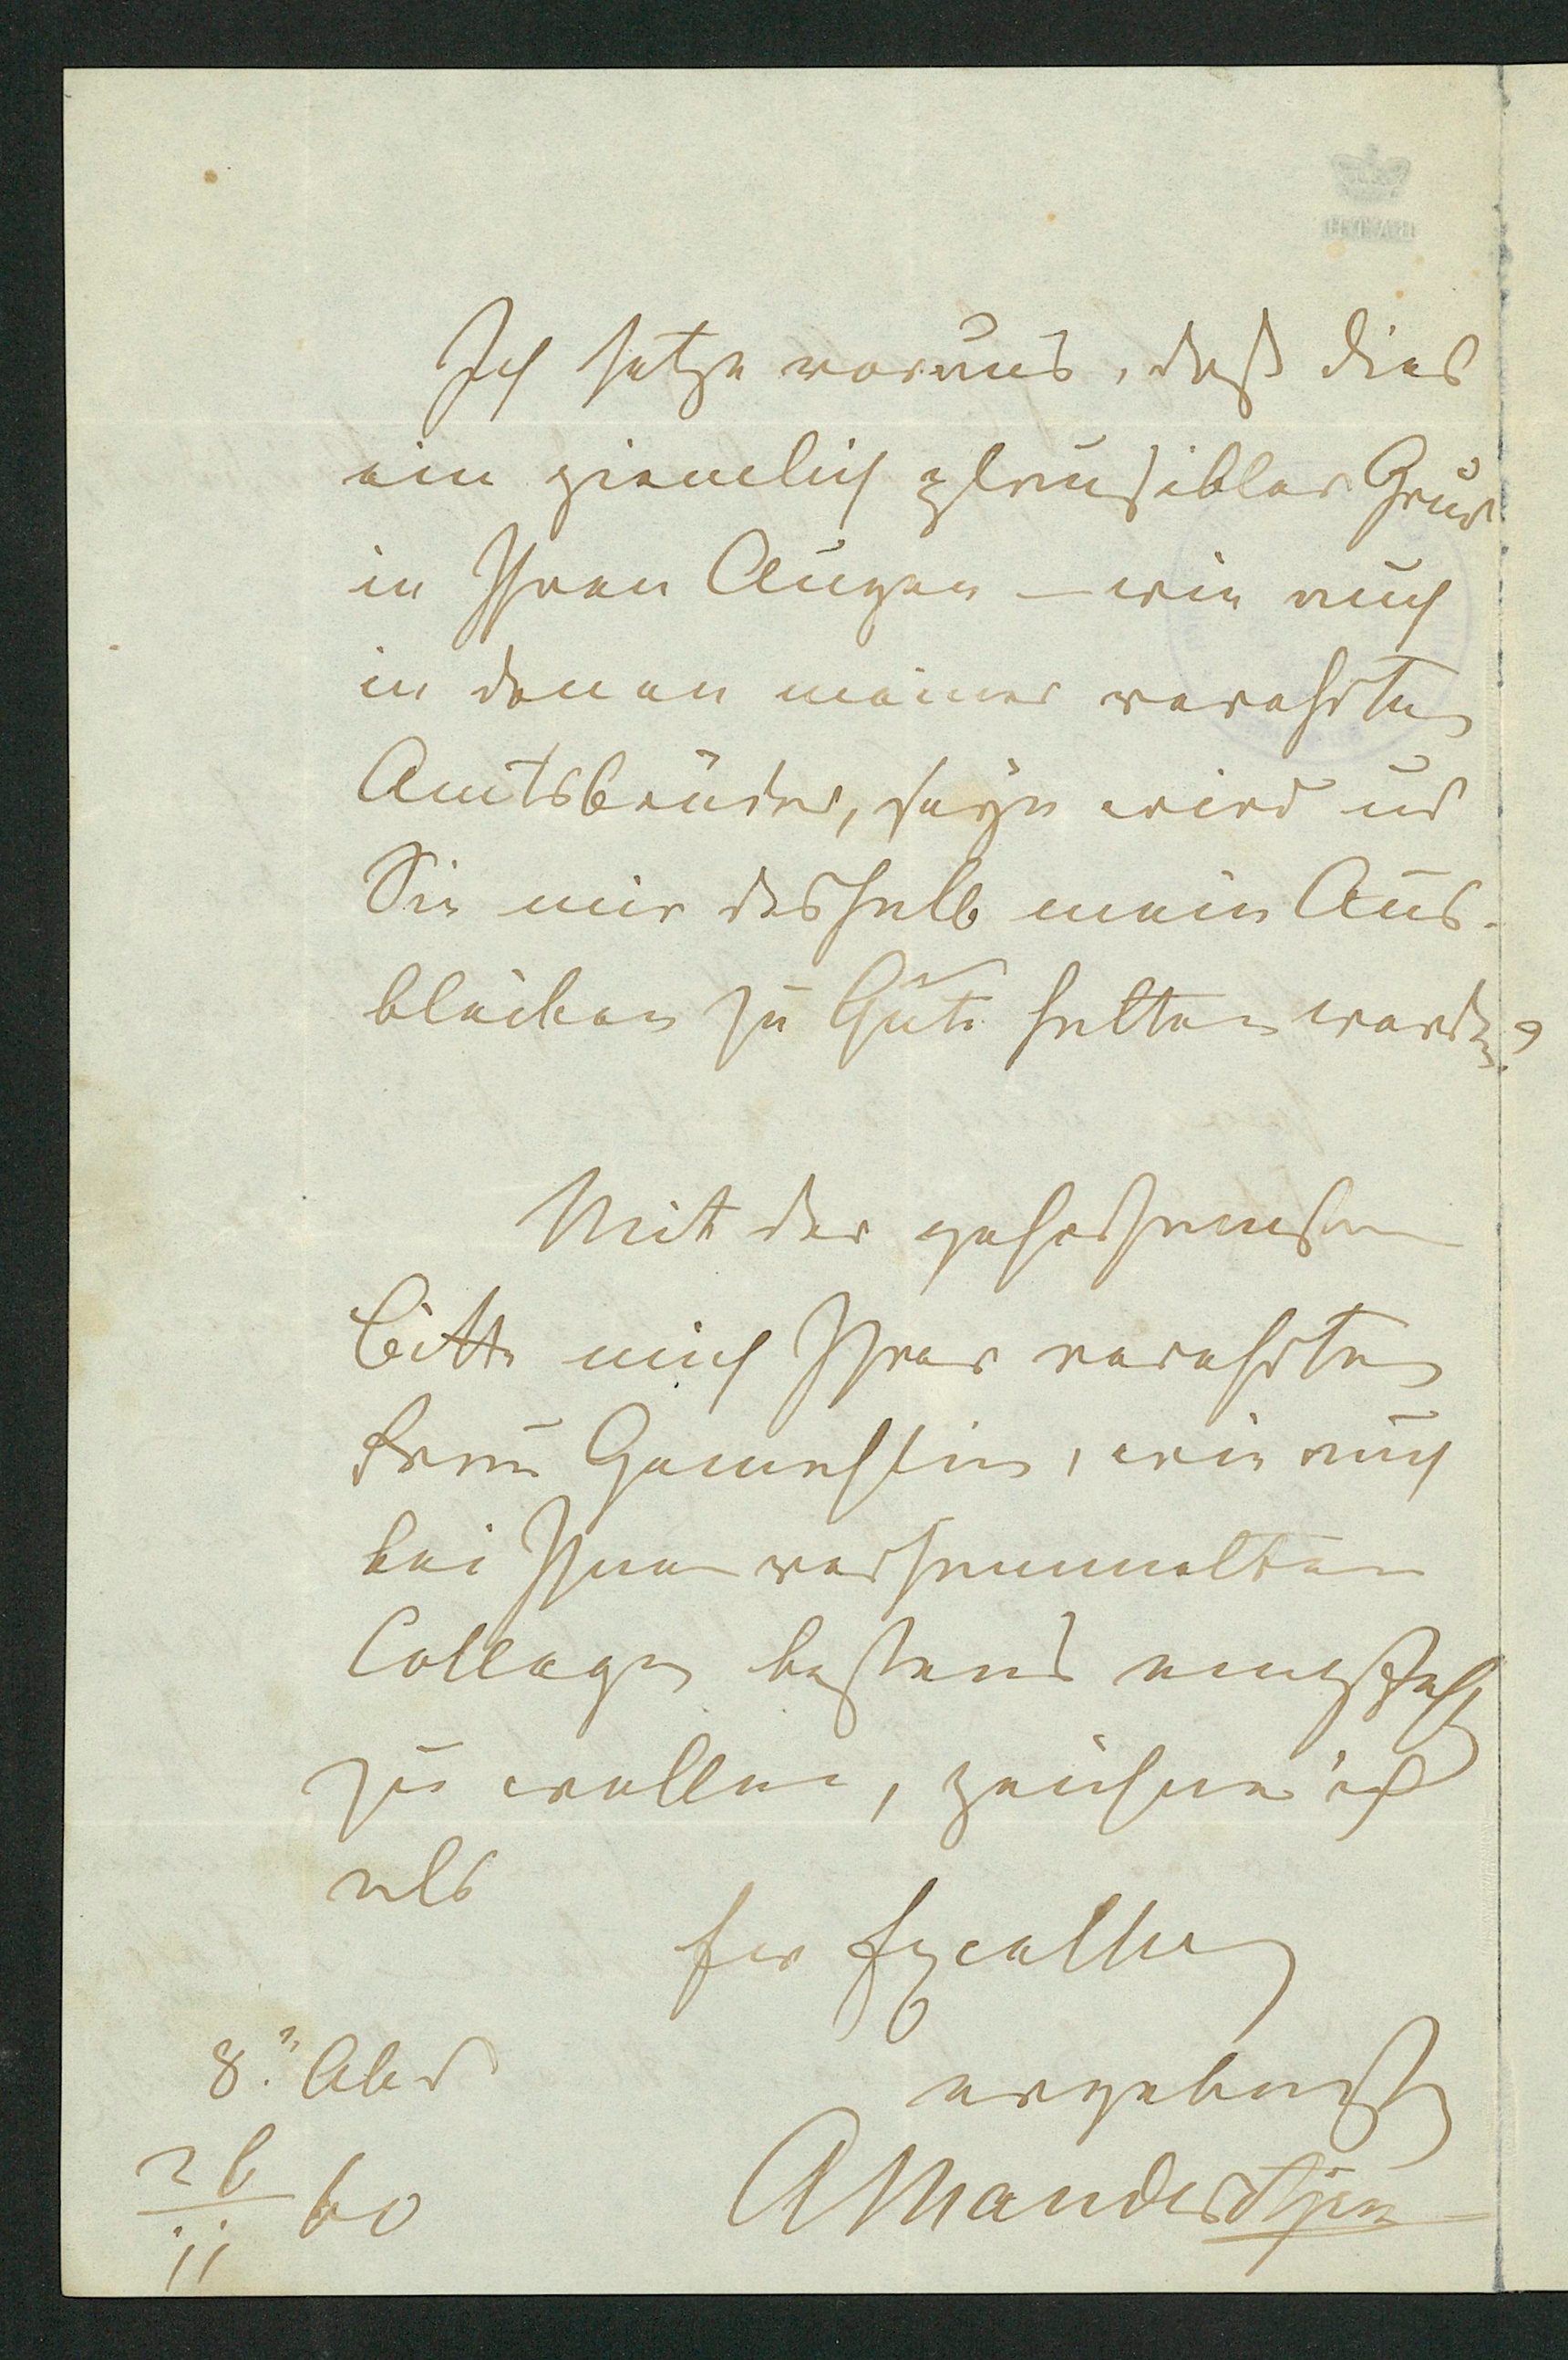 Ich setze voraus, daß dies
ein ziemlich plausibler Grund
in Ihren Augen – wie auch
in denen meiner verehrten
Amtsbrüder, seyn wird und
Sie mir deshalb mein Aus-
bleiben zu Gute halten werden?
Mit der gehorsamsten
Bitte mich Ihrer verehrten
Frau Gemahlin, wie auch
bei Ihnen versammelten
Collegen bestens empfehlen
zu wollen, zeichne ich
als
Ew Excellenz
8. Abd
ergebenster
26/11 60
AManderstjern